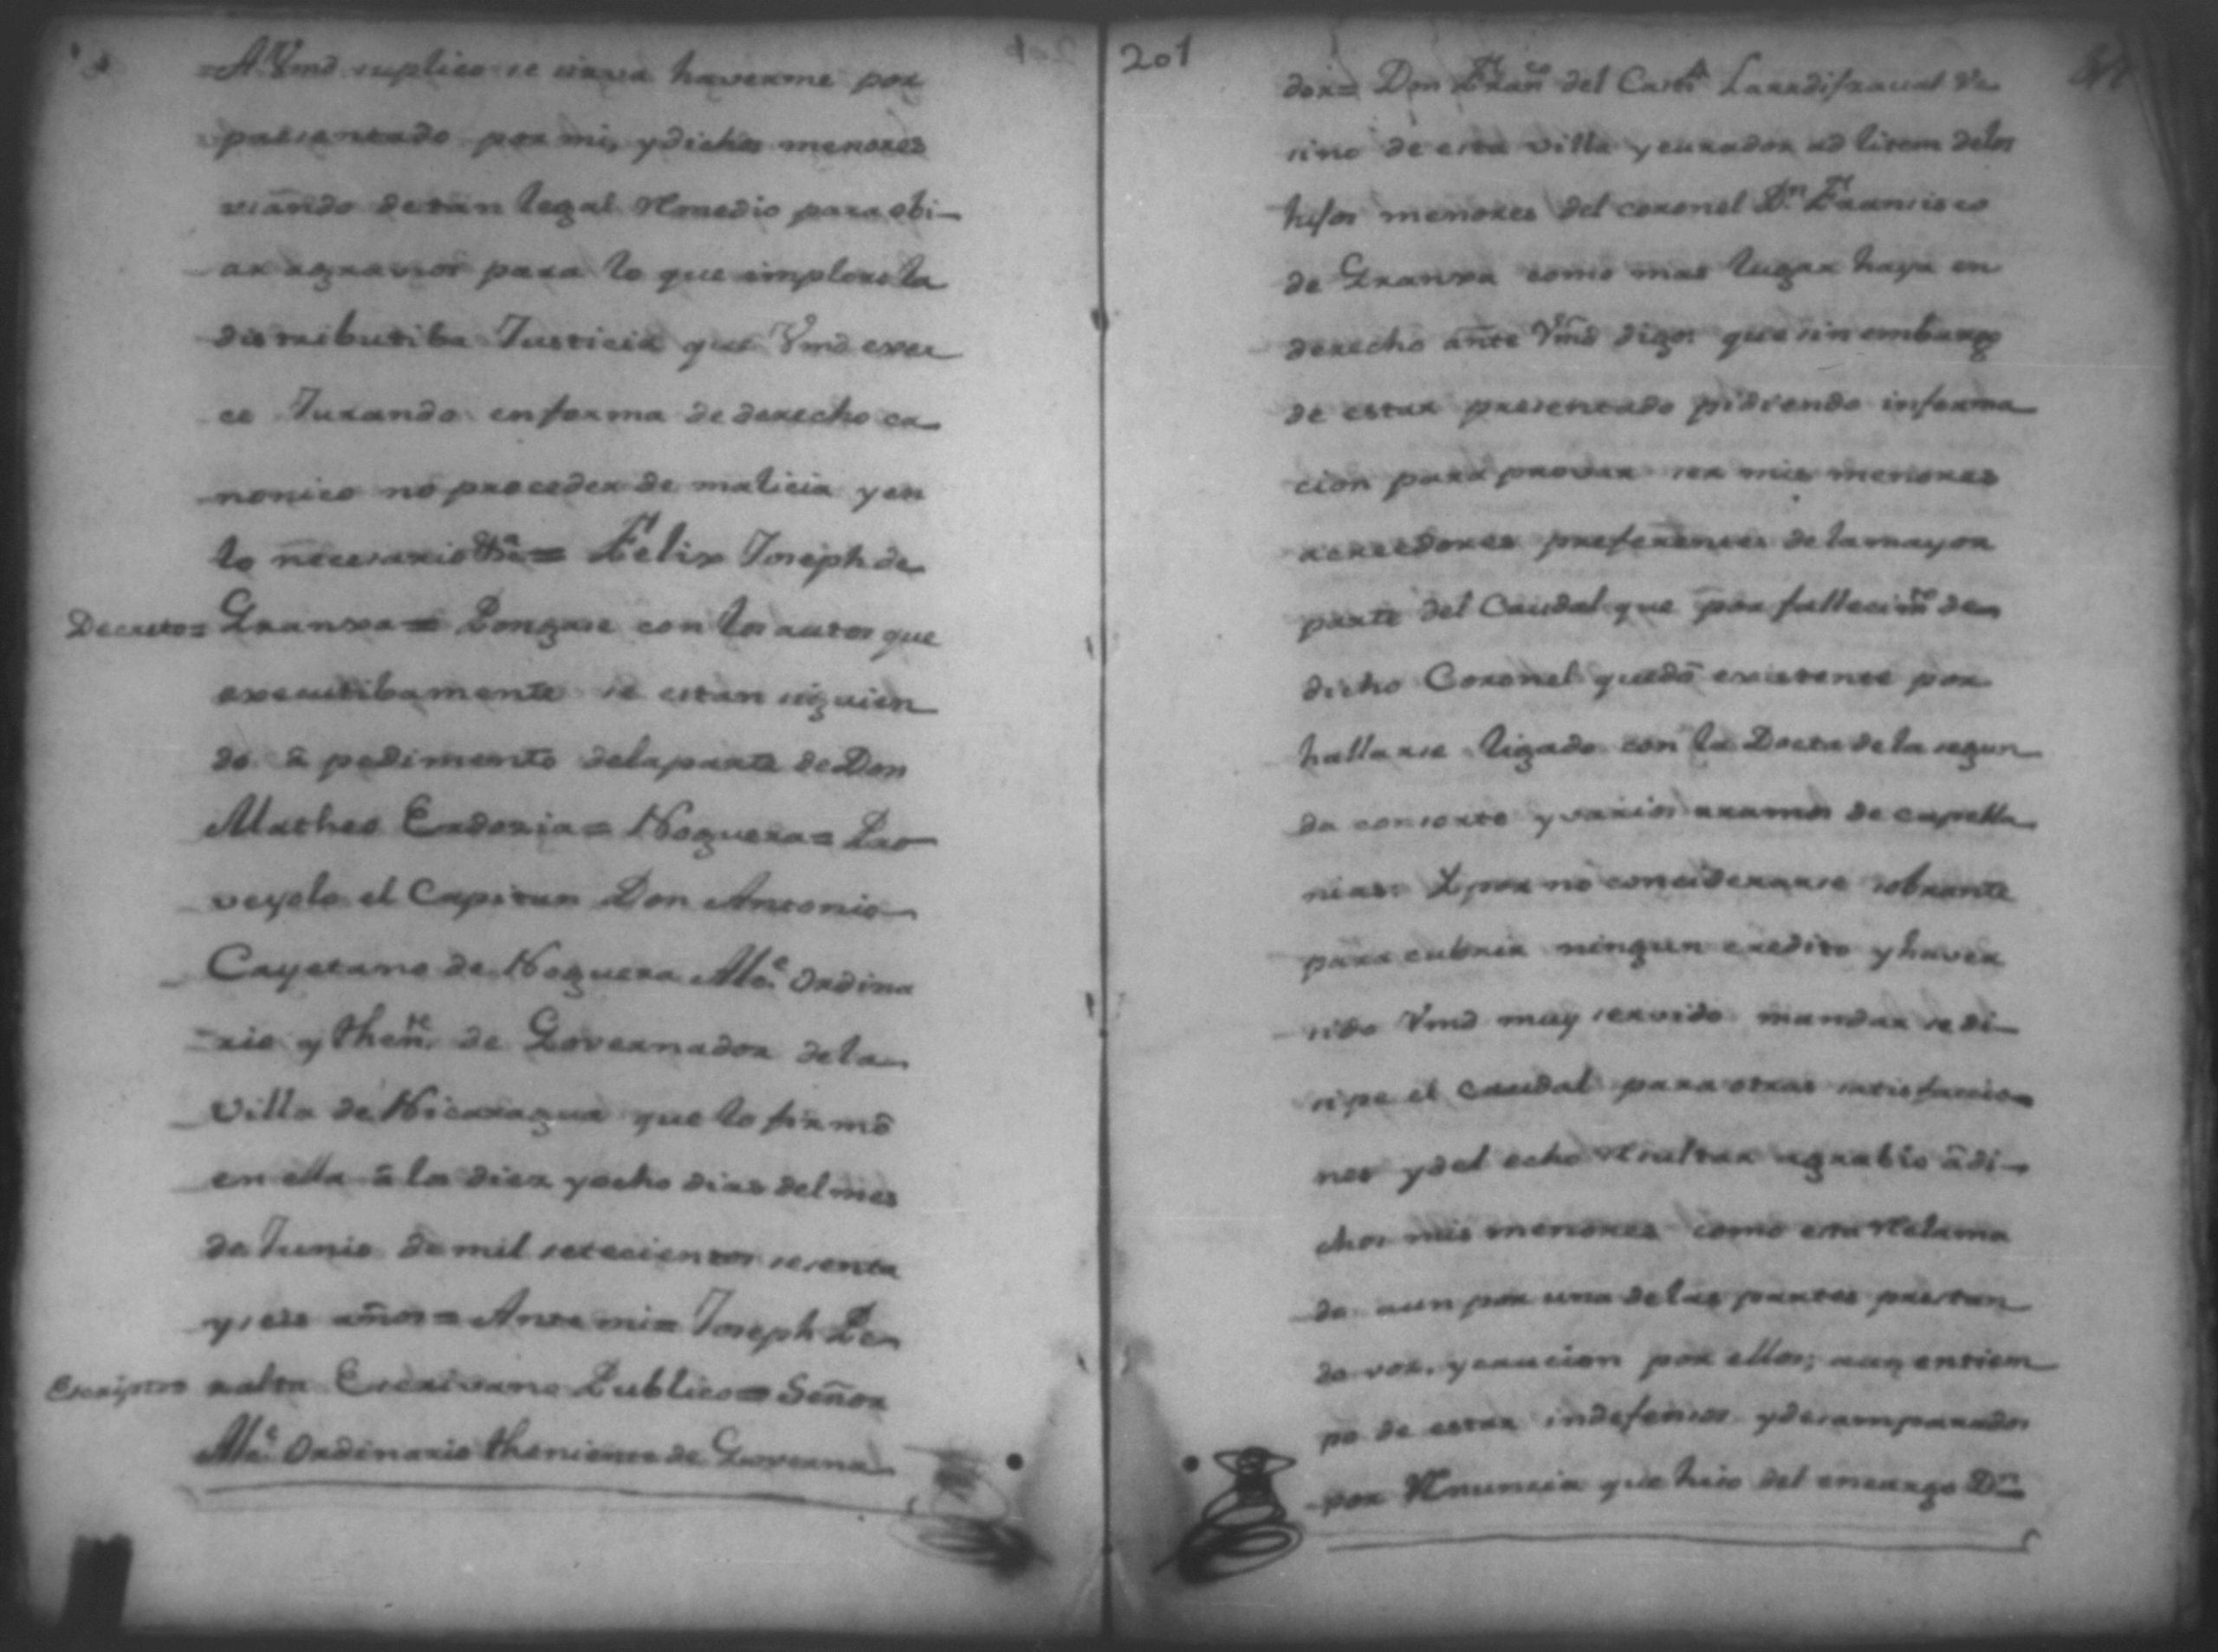 A Vmd suplico se sirva haverme por
presentado por mi, y dichos menores
usando de tan legal Remedio para obi-
ar agravios para lo que imploro la
distributiba Justicia que Vmd exer
ce Jurando en forma de derecho ca
nonico no proceder de malicia y en
lo necesario &a = Felix Joseph de
Decreto= Granxa = Pongase con los autos que
executibamente se estan siguien
do â pedimento dela parte de Don
Matheo = Noguera = Pro
veyolo el Capitan Don Antonio
Cayetano de Noguera Alce. Ordina
rio y thente. de Governador dela
Villa de Nicaragua que lo firmô
en ella â los diez y ocho dias del mes
de Junio de mil setecientos sesenta
y seis años = Ante mi = Joseph Pe
Escripto ralta Escrivano Publico = Señor
Alce. Ordinario theniente de Governa
201
dor= Don Franco del Castto Ve
sino de esta villa y curador ad litem delos
hijos menores del coronel Dn. Francisco
de Granxa como mas lugar haya en
derecho ante Vmd digo: que sin embargo
de estar presentado pidiendo informa
cion para provar ser mis menores
acreedores preferentes de la mayor
parte del Caudal que por fallecimto de
dicho Coronel quedô existente por
hallarse ligado con la Docta de la segun
da consorte y varios ramos de capella
nias: Y por no conciderarse sobrante
para cubrir ningun credito y haver
sido Vmd muy servido mandar se di-
sipe el caudal para otras satisfaccio
nes y del echo Resultar agrabio â di-
chos mis menores como esta Reclama
do aun por una de las partes prestan
do voz, y caucion por ellos; aun en tiem
po de estar indefensos y desamparados
por Renuncia que hiso del encargo Dn